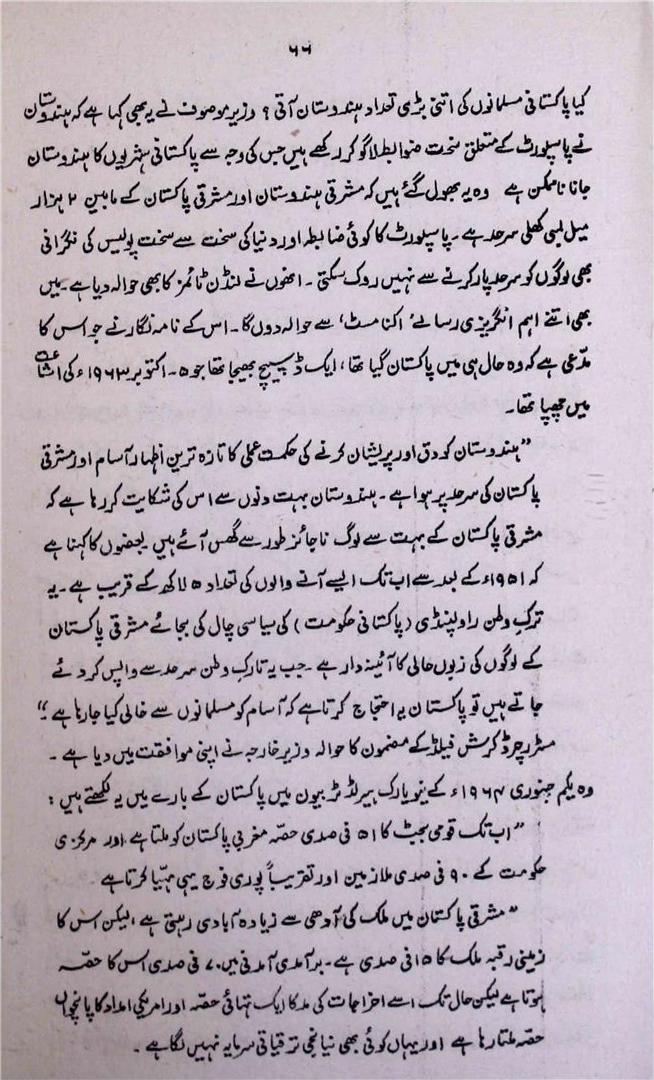 ۶۶
کیا پاکستانی مسلمانوں کی اتنی بڑی تعداد ہندوستان آتی؟ وزیر موصوف نے یہ بھی کہا ہے کہ ہندوستان
نے پاسپورٹ کے متعلق سخت ضوابط لاگو کر رکھے ہیں جس کی وجہ سے پاکستانی شہریوں کا ہندوستان
جانا ناممکن ہے وہ یہ بھول گئے ہیں کہ مشرقی ہندوستان اور مشرقی پاکستان کے مابین ۲ ہزار
میل لمبی کھلی سرحد ہے۔ پاسپورٹ کا کوئی ضابطہ اور دنیا کی سخت سے سخت پولیس کی نگرانی
بھی لوگوں کو سرحد پار کرنے سے نہیں روک سکتی۔ انھوں نے لنڈن ٹائمز کا بھی حوالہ دیا ہے۔ میں
بھی اتنے اہم انگریزی رسالے ’اکنامسٹ‘ سے حوالہ دوں گا۔ اس کے نامہ نگار نے جو اس کا
مدّعی ہے کہ وہ حال ہی میں پاکستان گیا تھا، ایک ڈسپیچ بھیجا تھا جو ۵۔ اکتوبر ۱۹۶۳ء کی اشاعت
میں چھپا تھا۔
”ہندوستان کو دق اور پریشان کرنے کی حکمت عملی کا تازہ ترین اظہار آسام اور مشرقی
پاکستان کی سرحد پر ہوا ہے۔ ہندوستان بہت دنوں سے اس کی شکایت کر رہا ہے کہ
مشرقی پاکستان کے بہت سے لوگ ناجائز طور سے گھس آئے ہیں بعضوں کا کہنا ہے
کہ ۱۹۵۱ء کے بعد سے اب تک ایسے آنے والوں کی تعداد ۵ لاکھ کے قریب ہے۔ یہ
ترکِ وطن راولپنڈی (پاکستانی حکومت) کی سیاسی چال کی بجائے مشرقی پاکستان
کے لوگوں کی زبوں حالی کا آئینہ دار ہے۔ جب یہ تارکِ وطن سرحد سے واپس کر دئے
جاتے ہیں تو پاکستان یہ احتجاج کرتا ہے کہ آسام کو مسلمانوں سے خالی کیا جا رہا ہے۔“
مسٹر رچرڈ کرش فیلڈ کے مضمون کا حوالہ وزیر خارجہ نے اپنی موافقت میں دیا ہے۔
وہ یکم جنوری ۱۹۶۴ء کے نیو یارک ہیرلڈ ٹریبیون میں پاکستان کے بارے میں یہ لکھتے ہیں:
”اب تک قومی بجٹ کا ۵۱ فی صدی حصّہ مغربی پاکستان کو ملتا ہے اور مرکزی
حکومت کے ۹۰ فی صدی ملازمین اور تقریباً پوری فوج یہی مہیّا کرتا ہے
”مشرقی پاکستان میں ملک کی آدھی سے زیادہ آبادی رہتی ہے، لیکن اس کا
زمینی رقبہ ملک کا ۱۵ فی صدی ہے۔ برآمدی آمدنی میں ۷۰ فی صدی اس کا حصّہ
ہوتا ہے لیکن حال تک اسے اخراجات کی مد کا ایک تہائی حصّہ اور امریکی امداد کا پانچواں
حصّہ ملتا رہا ہے اور یہاں کوئی بھی نیا نجی ترقیاتی سرمایہ نہیں لگا ہے۔